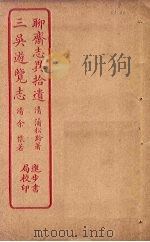 聊齋志異拾遺
清 蒲松齡著
三吳遊覽志
清 余懷著
進步書
局校印